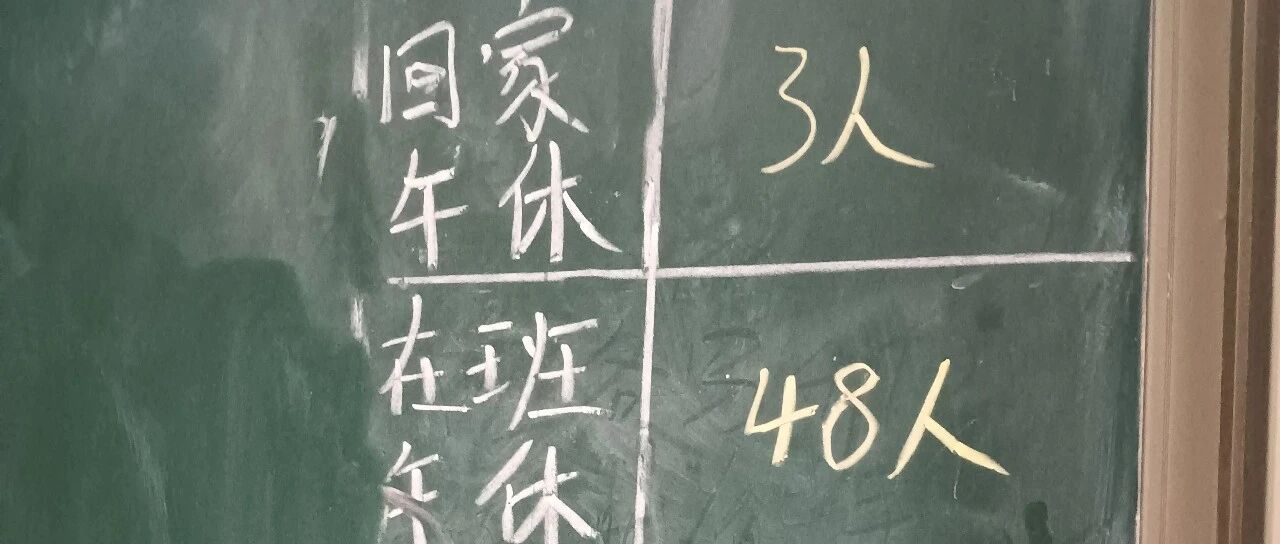 回家
午休
3人
在班
午休
48人